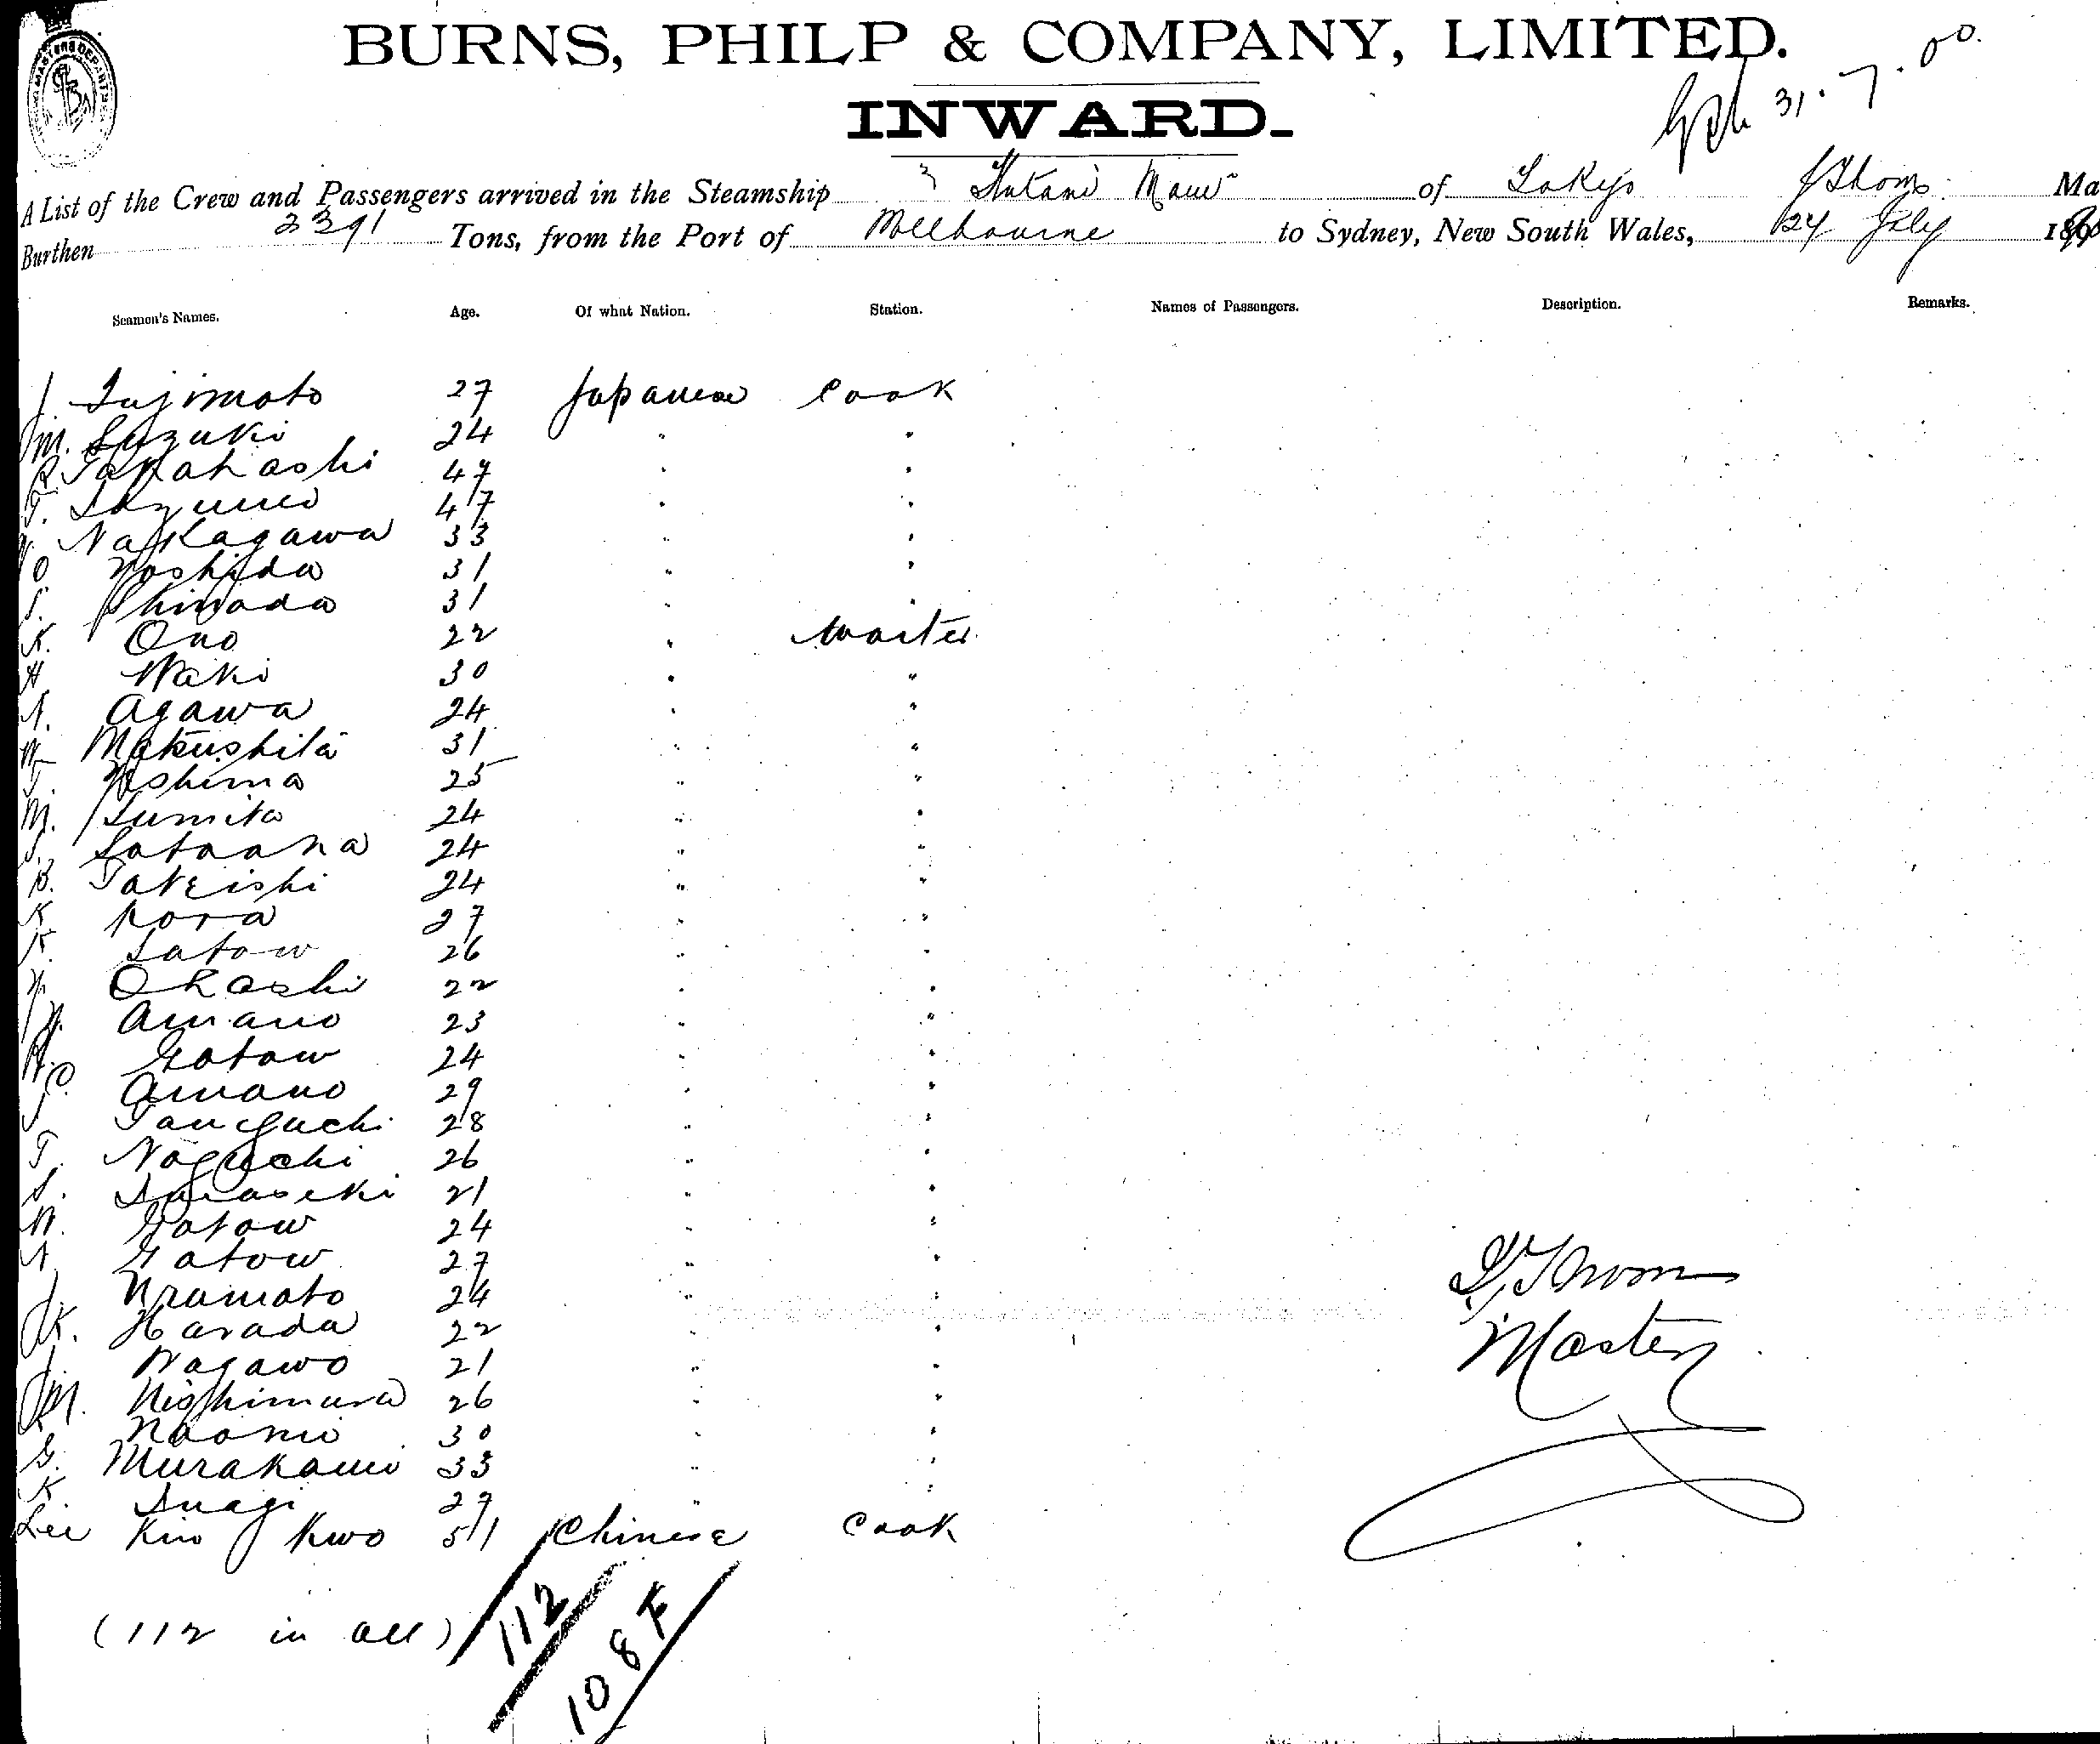 BURNS, PHILP & COMPANY, LIMITED.
31.7.00.
INWARD.
A List of the Crew and Passengers arrived in the Steamship Futami Maru of Tokyo J Thom Ma
Burthen 2391 Tons, from the Port of Melbourne to Sydney, New South Wales, 24 July 18
Seamen's Names. Age. Of what Nation. Station. Names of Passengers. Description. Remarks.
J. Fujimoto 27 Japanese Cook
M. Suzuki 24 " "
Takahashi 47 " "
T. 47 " "
Nakagawa 33 " "
O. Yoshida 31 " "
S. Shimada 31 " "
K. Ono 22 " Waiter
H Waki 30 " "
Agawa 24 " "
Makushita 31 " "
T. 25 " "
M. Sumita 24 " "
S. 24 " "
B. Takeishi 24 " "
K Kora 27 " "
K. Satow 26 " "
Ohashi 22 " "
Amano 23 " "
Gotow 24 " "
Amano 29 " "
Taniguchi 28 " "
T. Noguchi 26 " "
S. 21 " "
Gotow 24 " "
Gatow 27 " "
24 " "
K. Harada 22 " "
Nagawo 21 " "
M. Nishimura 26 " "
Naomi 30 " "
G. Murakami 33 " "
K 27 " "
Lee Kin Kwo 51 Chinese Cook
J Thom
Master
(112 in all) 112
108